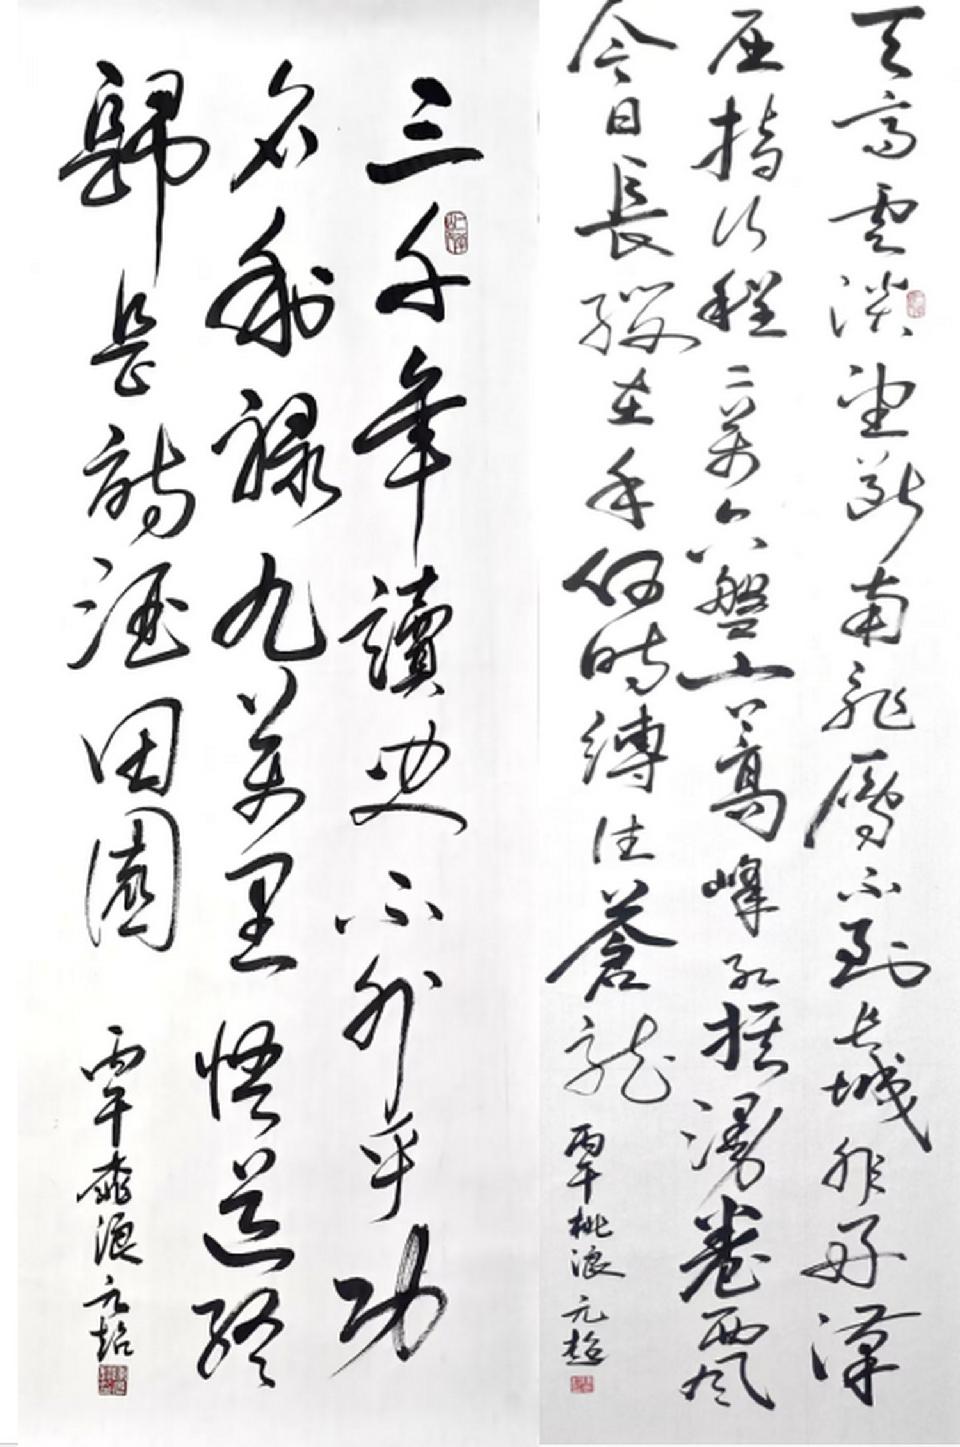 天高雲淡望斷南飛雁不到長城非好漢
屈指行程二萬六盤山上高峰紅旗漫卷西風
今日長纓在手何時縛住蒼龍
丙午桃浪元超
三千年讀史不外乎功
名利祿九萬里悟道終
歸是詩酒田園
丙午桃浪元超